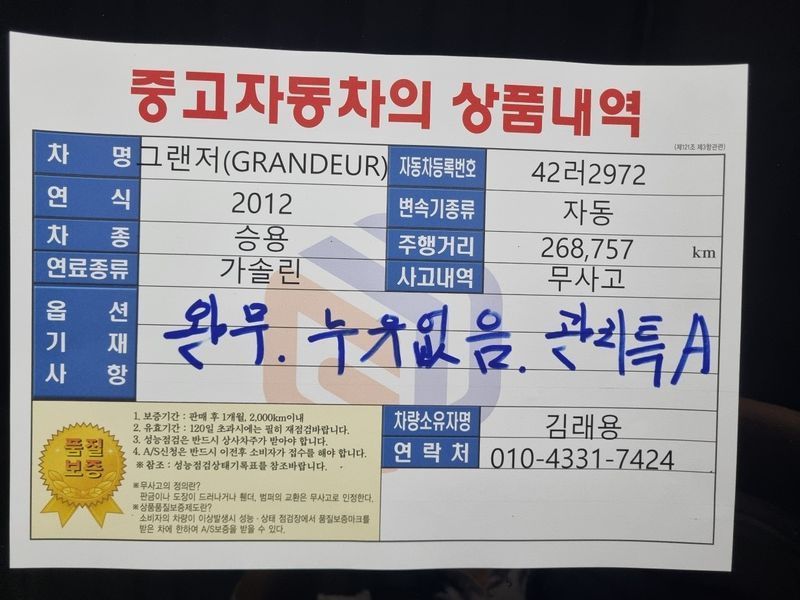 중고자동차의 상품내역
(제121조 제3항관련)
차 명 그랜저(GRANDEUR) 자동차등록번호 42러2972
연 식 2012 변속기종류 자동
차 종 승용 주행거리 268,757 km
연료종류 가솔린 사고내역 무사고
옵 션
기 재
사 항
완무. 누유없음. 관리특A
품질
보증
1. 보증기간 : 판매 후 1개월, 2,000km이내
2. 유효기간 : 120일 초과시에는 필히 재점검바랍니다.
3. 성능점검은 반드시 상사차주가 받아야 합니다.
4. A/S신청은 반드시 이전후 소비자가 접수를 해야 합니다.
※ 참조 : 성능점검상태기록표를 참조바랍니다.
※무사고의 정의란?
판금이나 도장이 드러나거나 휀더, 범퍼의 교환은 무사고로 인정한다.
※상품품질보증제도란?
소비자의 차량이 이상발생시 성능·상태 점검장에서 품질보증마크를
받은 차에 한하여 A/S보증을 받을 수 있다.
차량소유자명 김래용
연 락 처 010-4331-7424